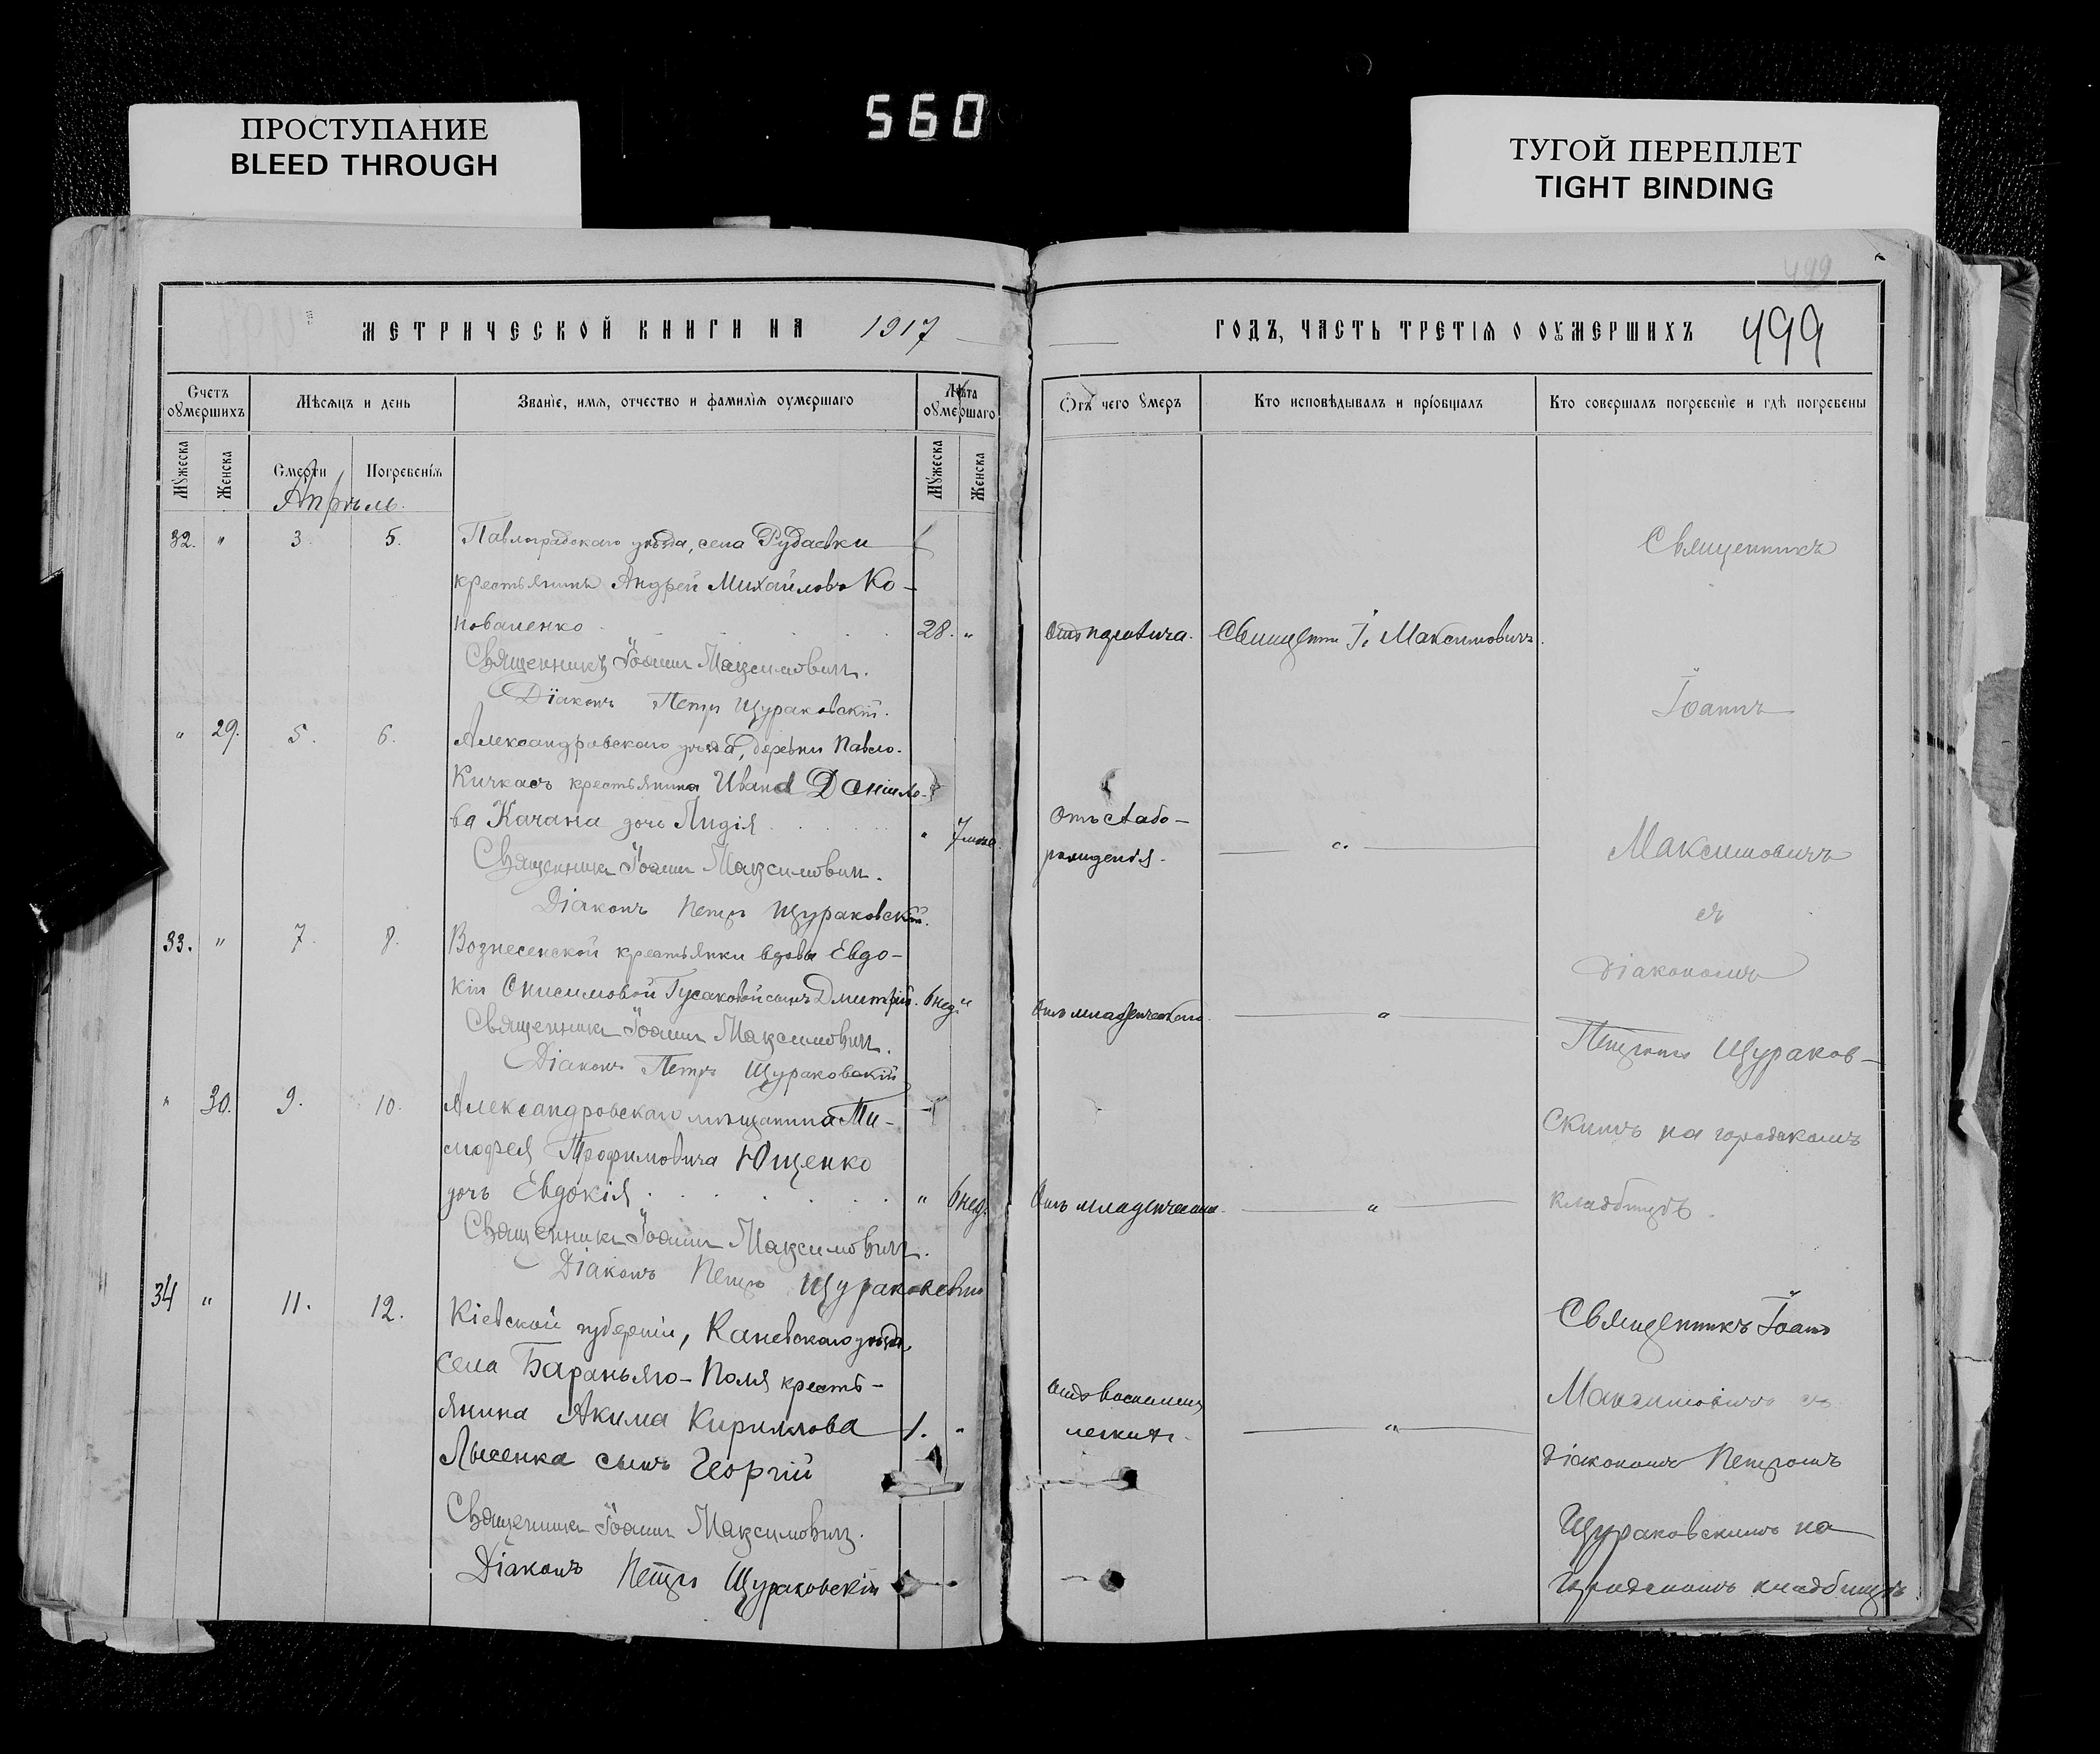 560
ПРОСТУПАНИЕ
BLEED THROUGH
ТУГОЙ ПЕРЕПЛЕТ
TIGHT BINDING
499
МЕТРИЧЕСКОЙ КНИГИ НА 1917
ГОДЪ, ЧАСТЬ ТРЕТІЯ О ОУМЕРШИХЪ 499
Счетъ оумершихъ
Мѣсяцъ и день
Званіе, имя, отчество и фамилія оумершаго
Лѣта оумершаго
Отъ чего оумеръ
Кто исповѣдывалъ и пріобщалъ
Кто совершалъ погребеніе и гдѣ погребены
Мужеска
Женска
Смерти
Погребенія
Мужеска
Женска
Апрѣль.
32. " 3. 5. Павлоградскаго уѣзда, села Рудаевки
крестьянинъ Андрей Михайловъ Ко-
новаленко 28. "
Священ І. Максимовичъ.
Священникъ Іоаннъ Максимович.
Діаконъ Петръ Щураковскій.
" 29. 5. 6. Александровскаго уѣзда, деревни Павло-
Кичкасъ крестьянина Ивана Данило-
ва Качана дочь Лидія "
Отъ слабо-
рожденія.
"
Священникъ Іоаннъ Максимович.
Діаконъ Петръ Щураковскій.
33. " 7. 8. Вознесенской крестьянки вдовы Евдо-
кіи Онисимовой Гусаковой сынъ Дмитрій. 6 нед. "
Отъ младенческой
"
Священникъ Іоаннъ Максимович.
Діаконъ Петръ Щураковскій
" 30. 9. 10. Александровскаго мѣщанина Ти-
мофея Трофимовича Ющенко
дочь Евдокія " 6 нед.
Отъ младенческой
"
Священникъ Іоаннъ Максимович.
Діаконъ Петръ Щураковскій
34 " 11. 12. Кіевской губерніи, Каневскаго уѣзда
села Бараньяго-Поля кресть-
янина Акима Кириллова 1. "
Лысенка сынъ Георгій
легкихъ.
"
Священникъ Іоаннъ Максимович.
Діаконъ Петръ Щураковскій
Священникъ
Іоаннъ
Максимовичъ
съ
діакономъ
Петромъ Щураков-
скимъ на городскомъ
кладбищѣ.
Священникъ Іоаннъ
Максимовичъ съ
діакономъ Петромъ
Щураковскимъ на
городскомъ кладбищѣ